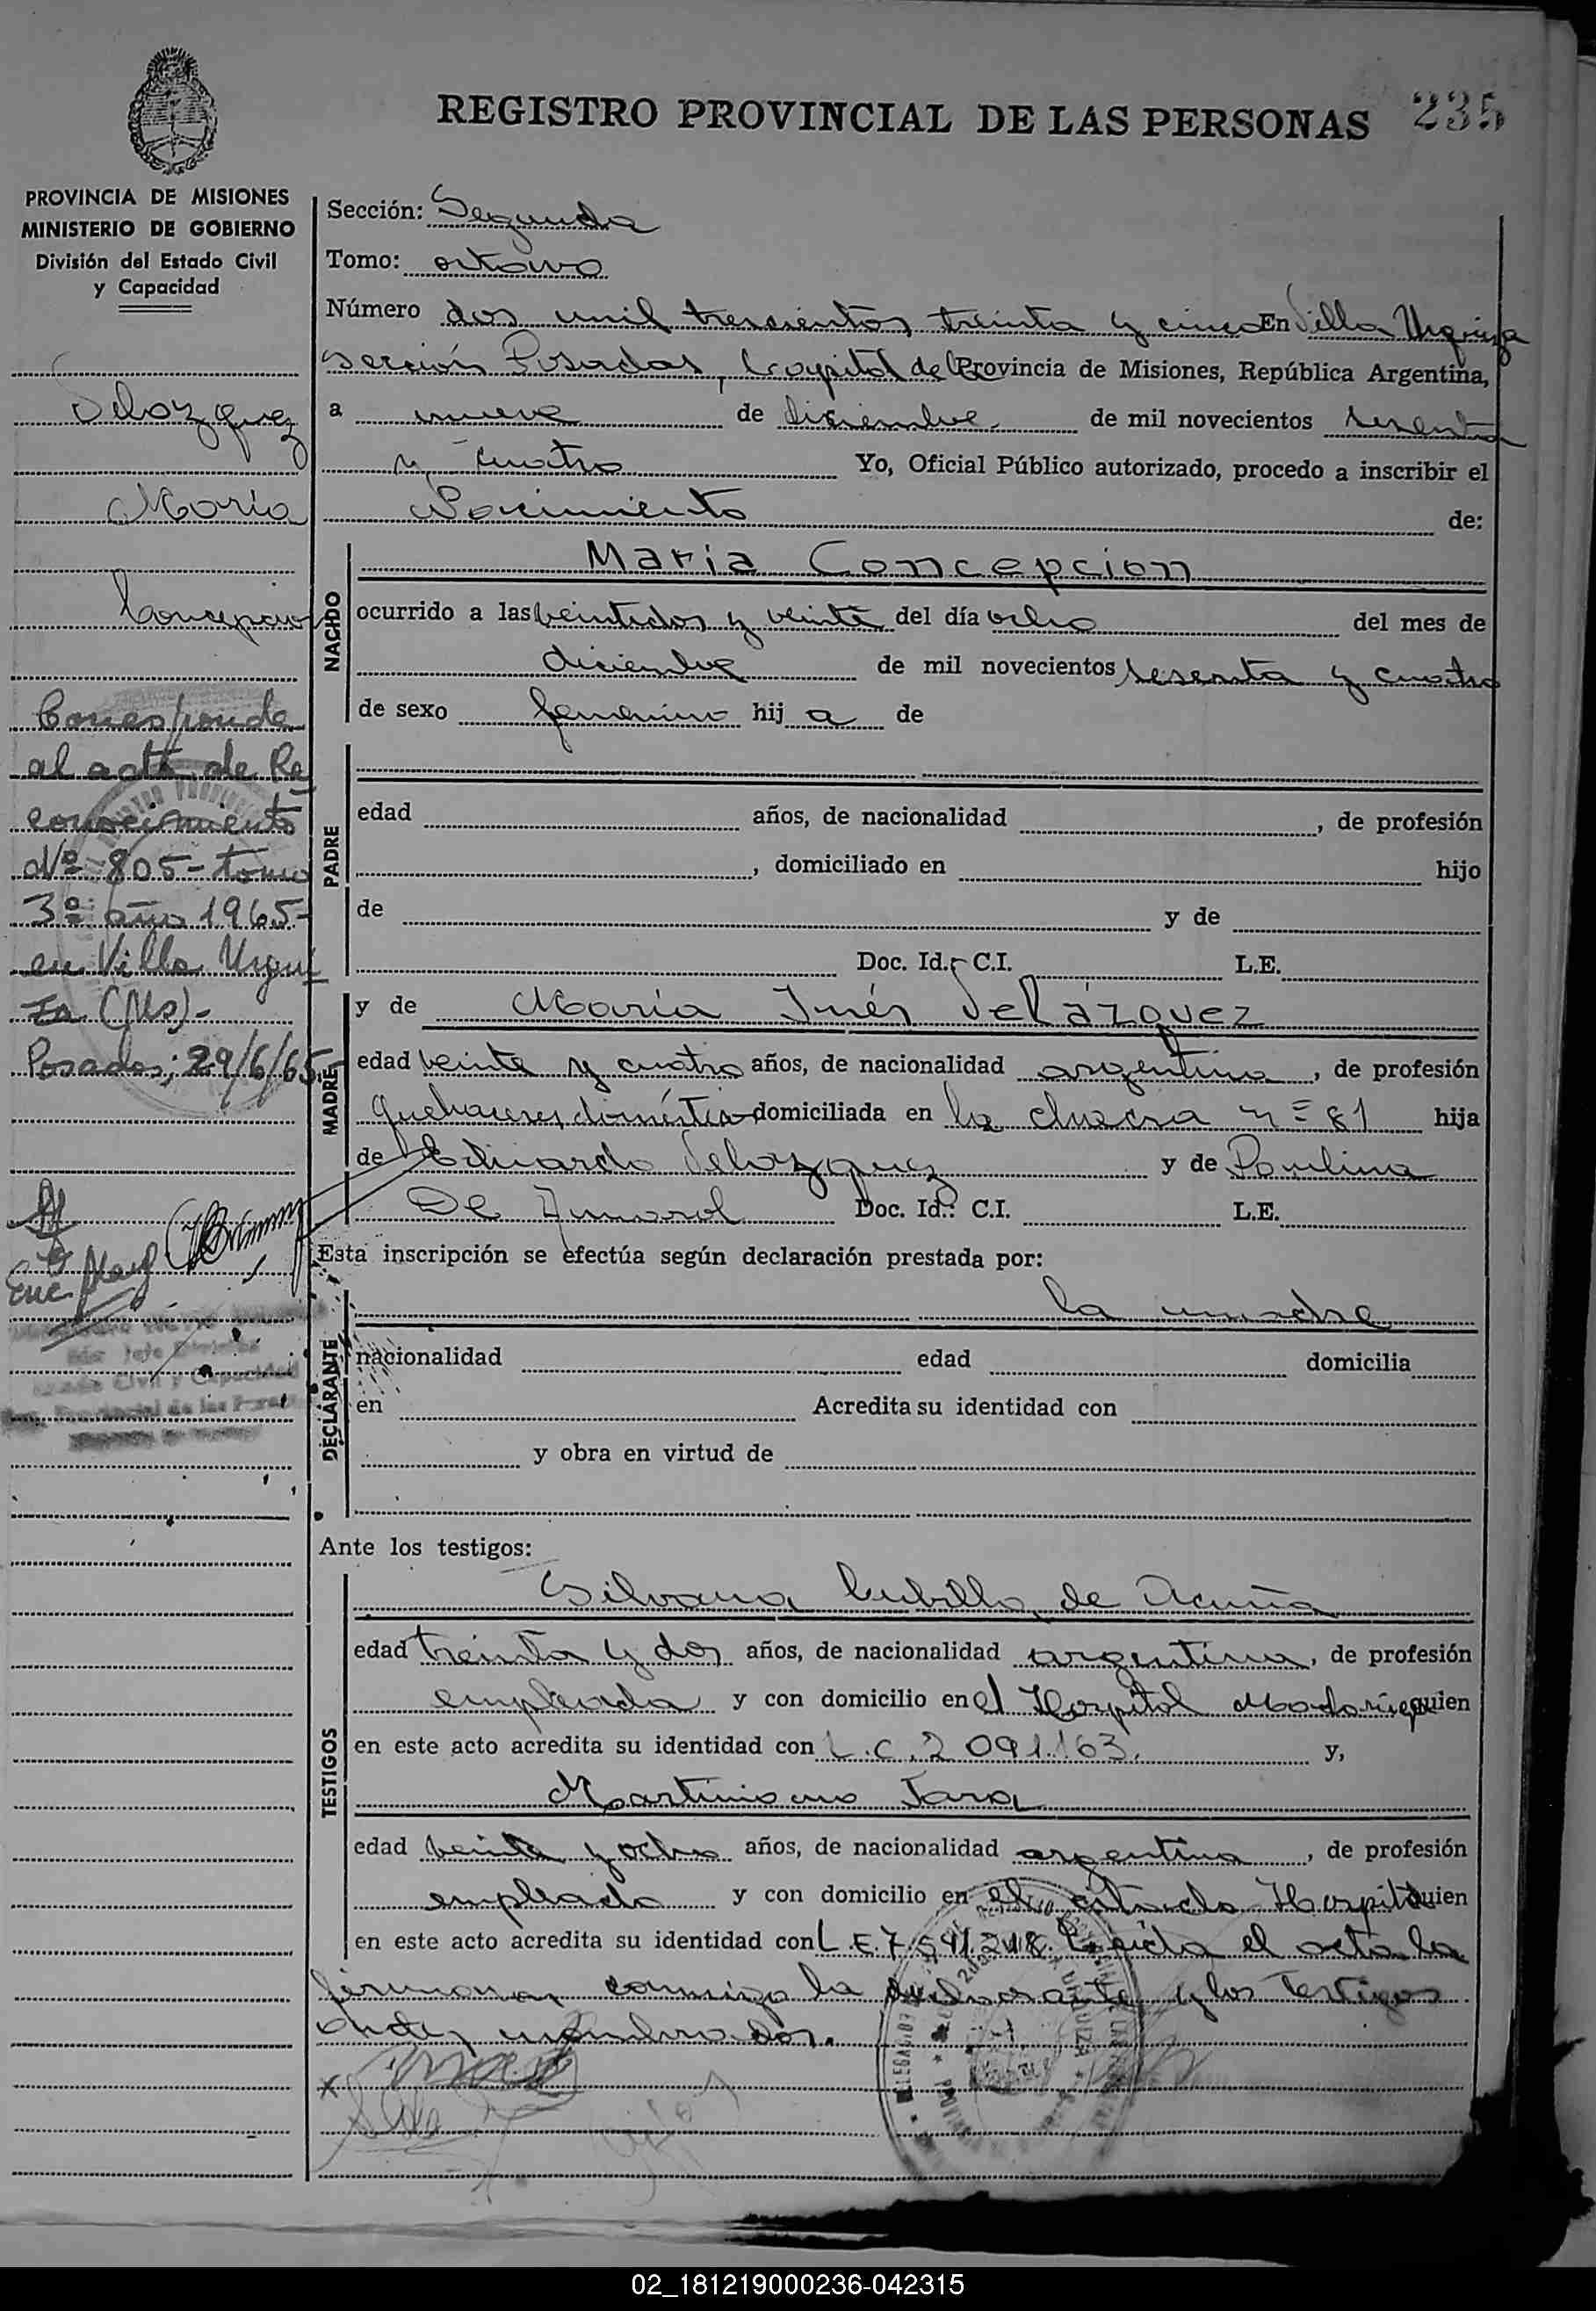 REGISTRO PROVINCIAL DE LAS PERSONAS 235
PROVINCIA DE MISIONES
MINISTERIO DE GOBIERNO
División del Estado Civil
y Capacidad
Velazquez
María
Concepcion
Corresponde
al acta de Re
conocimiento
Nº 805 - tomo
3º: año 1965-
en Villa Urqui
za (Ms)-
Posadas; 29/6/65.-
Sección: Segunda
Tomo: octavo
Número dos mil trescientos treinta y cinco En Villa Urquiza
sección Posadas, Capital de la Provincia de Misiones, República Argentina,
a nueve de diciembre de mil novecientos sesenta
y cuatro Yo, Oficial Público autorizado, procedo a inscribir el
Nacimiento de:
NACIDO
Maria Concepcion
ocurrido a las veintidos y veinte del día ocho del mes de
diciembre de mil novecientos sesenta y cuatro
de sexo femenino hij a de
PADRE
edad años, de nacionalidad , de profesión
, domiciliado en hijo
de y de
Doc. Id.- C.I. L.E.
MADRE
y de María Inés Velázquez
edad veinte y cuatro años, de nacionalidad argentina, de profesión
quehaceres domésticos domiciliada en la chacra nº 81 hija
de Eduardo Velazquez y de Paulina
De Doc. Id.: C.I. L.E.
Esta inscripción se efectúa según declaración prestada por:
DECLARANTE
la madre
nacionalidad edad domicilia
en Acredita su identidad con
y obra en virtud de
Ante los testigos:
TESTIGOS
Silvana Cubilla de Acuña
edad treinta y dos años, de nacionalidad argentina, de profesión
empleada y con domicilio en el Hospital Madariaga quien
en este acto acredita su identidad con L.C. 2 091.163. y,
Martiniano Jara
edad veinte y ocho años, de nacionalidad argentina, de profesión
empleado y con domicilio en el citado Hospital quien
en este acto acredita su identidad con L.E. 7.541.218. Leída el acta la
firman conmigo la declarante y los testigos
antes nombrados.
02_181219000236-042315